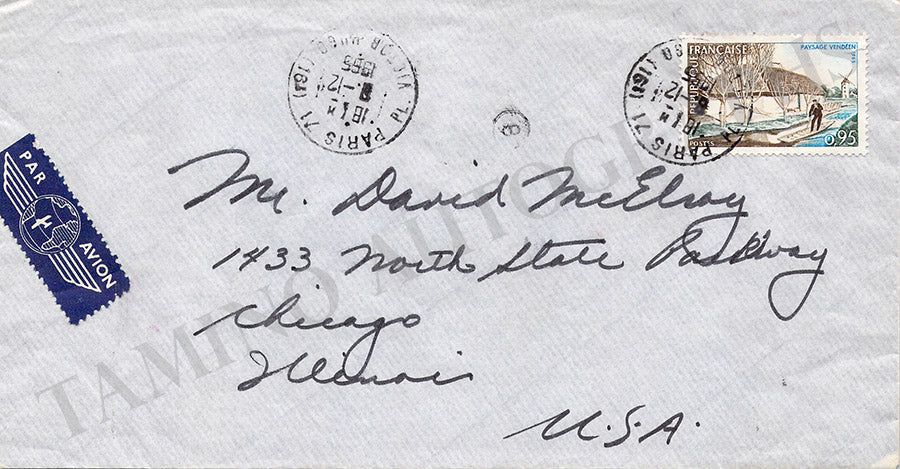 PARIS 71 (16I) PL. VICTOR HUGO
18H
-12
1965
8
REPUBLIQUE FRANÇAISE
PAYSAGE VENDÉEN
POSTES
0,95
PAR AVION
Mr. David McElroy
1433 North State Parkway
Chicago
Illinois
U.S.A.
TAMINO AUTOGRAPHS